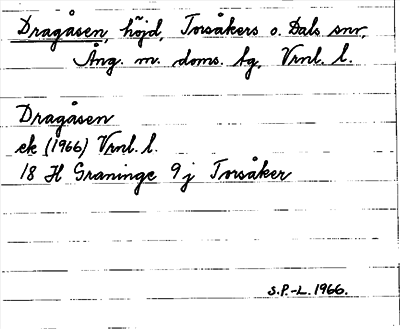 Dragåsen, höjd, Torsåkers o. Dals snr,
Ång. m. doms. tg, Vrnl. l.
Dragåsen
ek (1966) Vrnl. l.
18 H Graninge 9j Torsåker
S.P.-L. 1966.